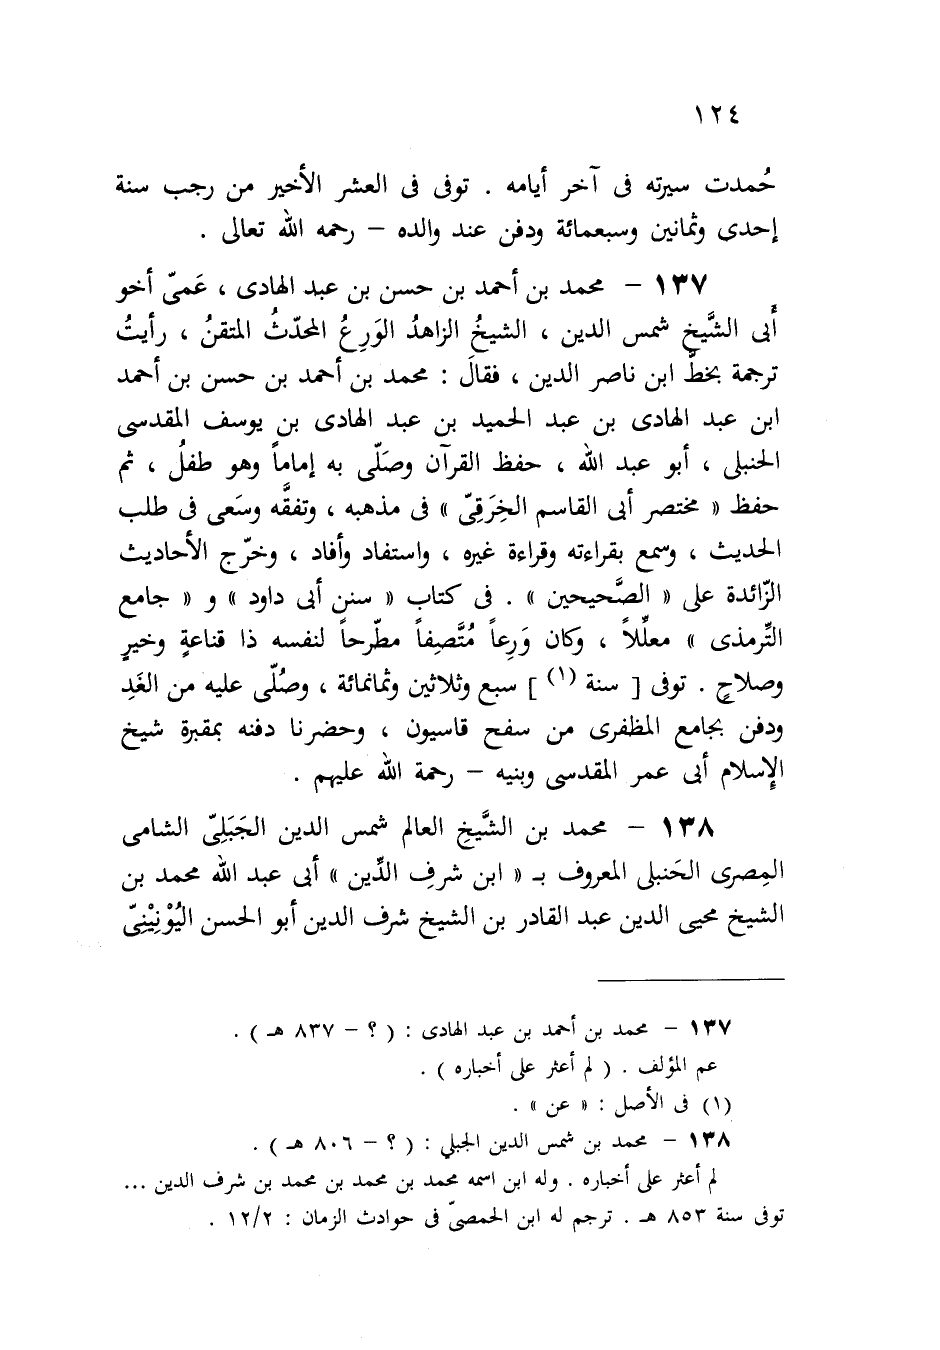 ١٢٤
حُمدت سيرته فى آخر أيامه . توفى فى العشر الأخير من رجب سنة
إحدى وثمانين وسبعمائة ودفن عند والده – رحمه الله تعالى .
١٣٧ – محمد بن أحمد بن حسن بن عبد الهادى ، عَمىّ أخو
أَبى الشَّيخ شمس الدين ، الشيخُ الزاهدُ الوَرِعُ المحدّثُ المتقنُ ، رأيتُ
ترجمة بخطِّ ابن ناصر الدين ، فقالَ : محمد بن أحمد بن حسن بن أحمد
ابن عبد الهادى بن عبد الحميد بن عبد الهادى بن يوسف المقدسى
الحنبلى ، أبو عبد الله ، حفظ القرآن وصَلّى به إماماً وهو طفلُ ، ثم
حفظ « مختصر أبى القاسم الخِرَقِىّ » فى مذهبه ، وتفقَّه وسَعى فى طلب
الحديث ، وسمع بقراءته وقراءة غيره ، واستفاد وأفاد ، وخرّج الأحاديث
الزّائدة على « الصَّحيحين » . فى كتاب « سنن أبى داود » و « جامع
التِّرمذى » معلّلاً ، وكان وَرِعاً مُتَّصِفاً مطّرحاً لنفسه ذا قناعةٍ وخيرٍ
وصلاحٍ . توفى [ سنة (١) ] سبع وثلاثين وثمانمائة ، وصُلّى عليه من الغَدِ
ودفن بجامع المظفرى من سفح قاسيون ، وحضرنا دفنه بمقبرة شيخ
الإسلام أبى عمر المقدسى وبنيه – رحمة الله عليهم .
١٣٨ – محمد بن الشَّيخِ العالم شمس الدين الجَبَلِىّ الشامى
المِصرى الحَنبلى المعروف بـ « ابن شرفِ الدِّين » أبى عبد الله محمد بن
الشيخ محيى الدين عبد القادر بن الشيخ شرف الدين أبو الحسن اليُوْنِيْنِىّ
١٣٧ – محمد بن أحمد بن عبد الهادى : ( ؟ – ٨٣٧ هـ ) .
عم المؤلف . ( لم أعثر على أخباره ) .
(١) فى الأصل : « عن » .
١٣٨ – محمد بن شمس الدين الجبلي : ( ؟ – ٨٠٦ هـ ) .
لم أعثر على أخباره . وله ابن اسمه محمد بن محمد بن محمد بن شرف الدين ...
توفى سنة ٨٥٣ هـ . ترجم له ابن الحمصىّ فى حوادث الزمان : ١٢/٢ .